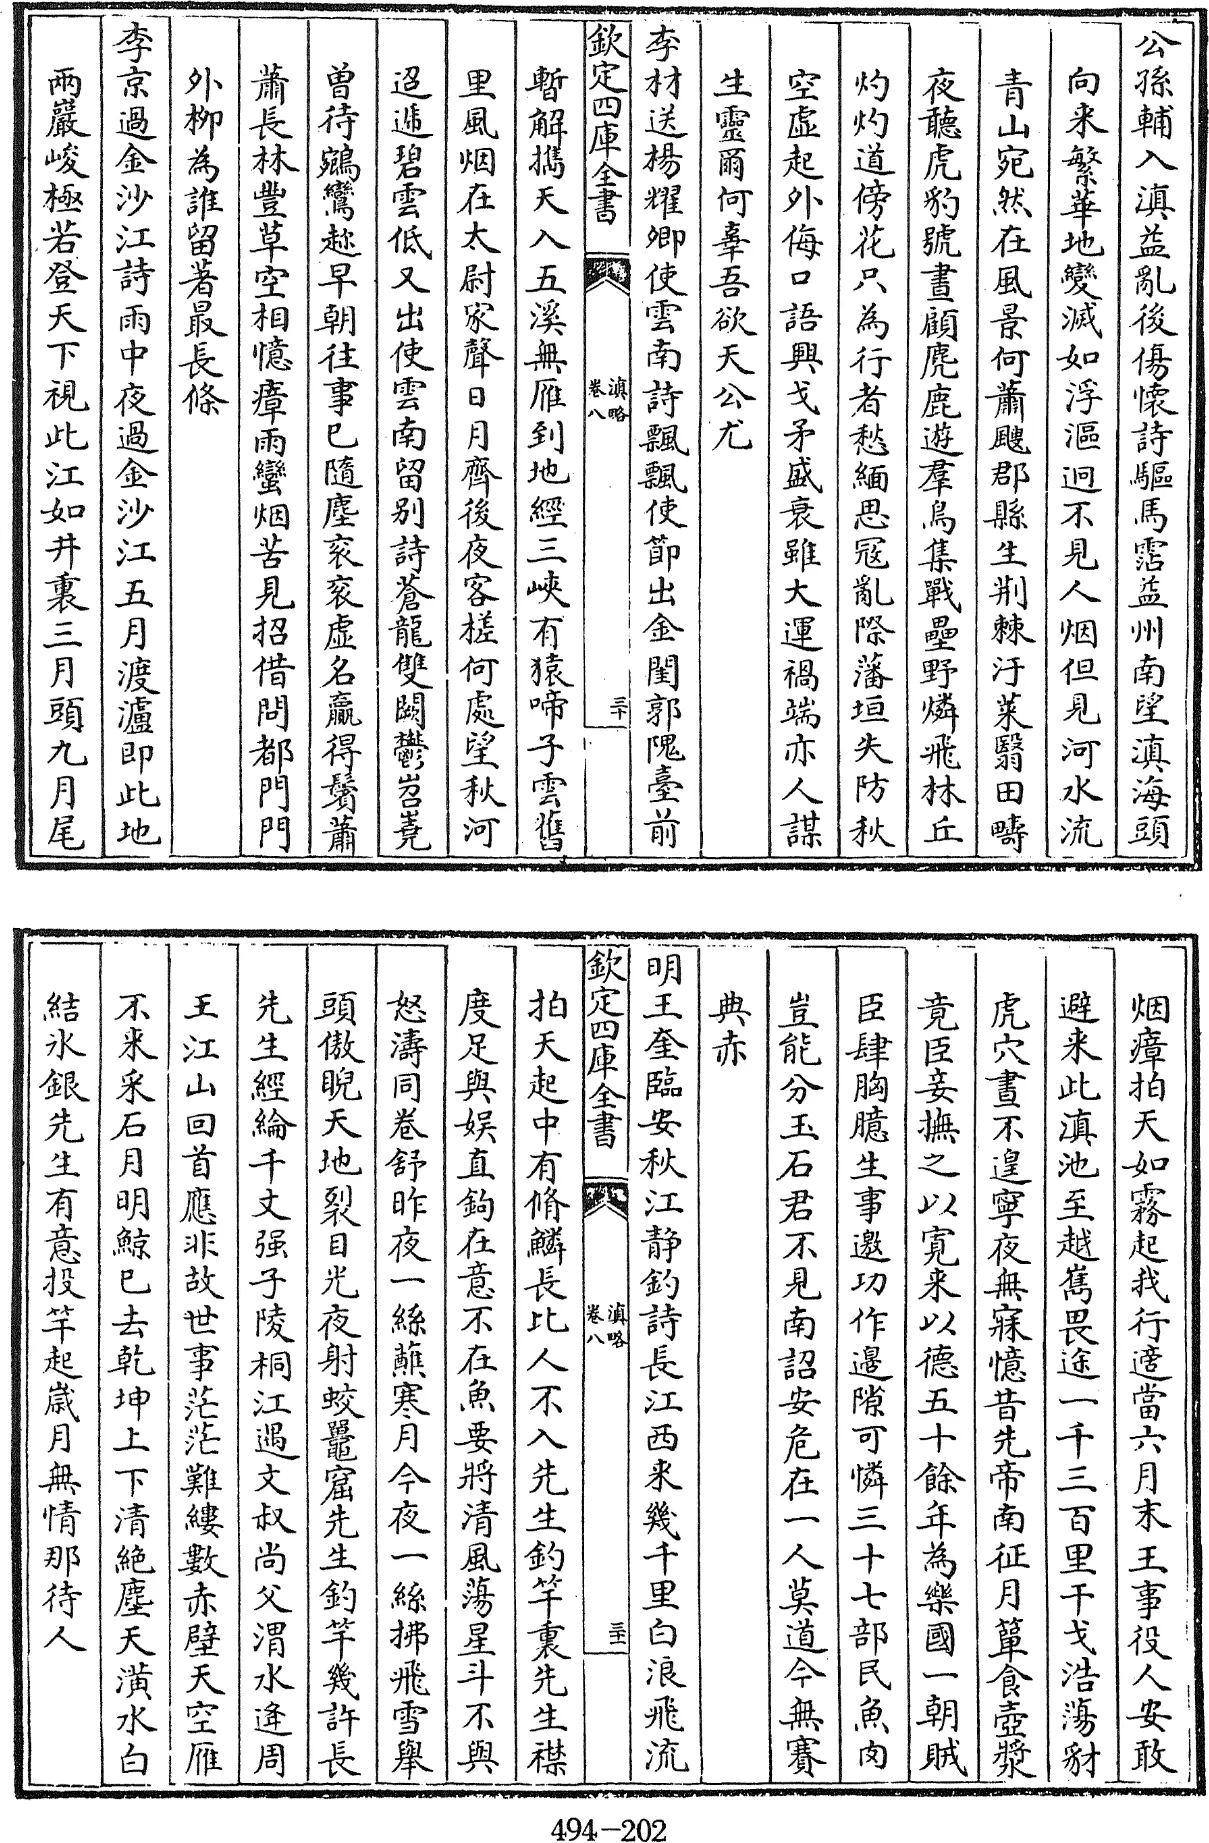 公孫輔入滇益亂後傷懷詩驅馬霑益州南望滇海頭
向来繁華地變滅如浮漚迥不見人烟但見河水流
青山宛然在風景何蕭颼郡縣生荆棘汙萊翳田疇
夜聽虎豹號晝顧麂鹿遊羣烏集戰壘野燐飛林丘
灼灼道傍花只為行者愁緬思冦亂際藩垣失防秋
空虛起外侮口語興戈矛盛衰雖大運禍端亦人謀
生靈爾何辜吾欲天公尤
李材送楊耀卿使雲南詩飄飄使節出金閨郭隗臺前
欽定四庫全書
滇略
卷八
三十
暫解攜天入五溪無雁到地經三峽有猿啼子雲舊
里風烟在太尉家聲日月齊後夜客槎何處望秋河
迢遞碧雲低又出使雲南留别詩蒼龍雙闕鬱岧嶤
曽待鵷鸞趂早朝往事已隨塵衮衮虛名贏得鬢蕭
蕭長林豐草空相憶瘴雨蠻烟苦見招借問都門門
外柳為誰留著最長條
李京過金沙江詩雨中夜過金沙江五月渡瀘即此地
兩巖峻極若登天下視此江如井裏三月頭九月尾
烟瘴拍天如霧起我行適當六月末王事役人安敢
避来此滇池至越嶲畏途一千三百里干戈浩蕩豺
虎穴晝不遑寧夜無寐憶昔先帝南征月簞食壺漿
竟臣妾撫之以寛来以德五十餘年為樂國一朝賊
臣肆胸臆生事邀功作邉隙可憐三十七部民魚肉
豈能分玉石君不見南詔安危在一人莫道今無賽
典赤
明王奎臨安秋江静釣詩長江西来幾千里白浪飛流
欽定四庫全書
滇略
卷八
三十一
拍天起中有脩鱗長比人不入先生釣竿裏先生襟
度足與娱直鈎在意不在魚要將清風蕩星斗不與
怒濤同卷舒昨夜一絲蘸寒月今夜一絲拂飛雪舉
頭傲睨天地裂目光夜射蛟鼉窟先生釣竿幾許長
先生經綸千丈强子陵桐江遇文叔尚父渭水逢周
王江山回首應非故世事茫茫難縷數赤壁天空雁
不来采石月明鯨已去乾坤上下清絶塵天潢水白
結氷銀先生有意投竿起嵗月無情那待人
494-202